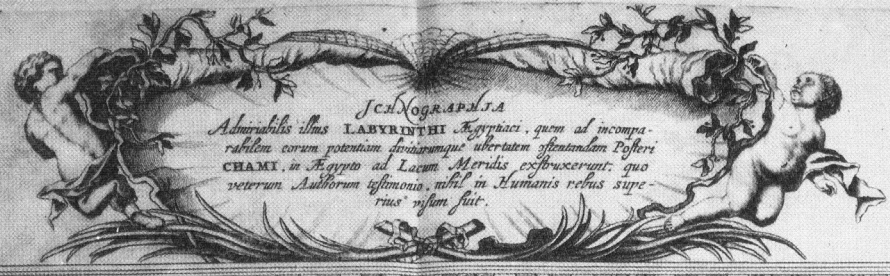 ICHNOGRAPHIA
Admirabilis illius LABYRINTHI Ægyptiaci, quem ad incompa-
rabilem eorum potentiam divitiarumque ubertatem ostentandam Posteri
CHAMI, in Ægypto ad Lacum Meridis exstruxerunt; quo
veterum Authorum testimonio, nihil in Humanis rebus supe-
rius visum fuit.